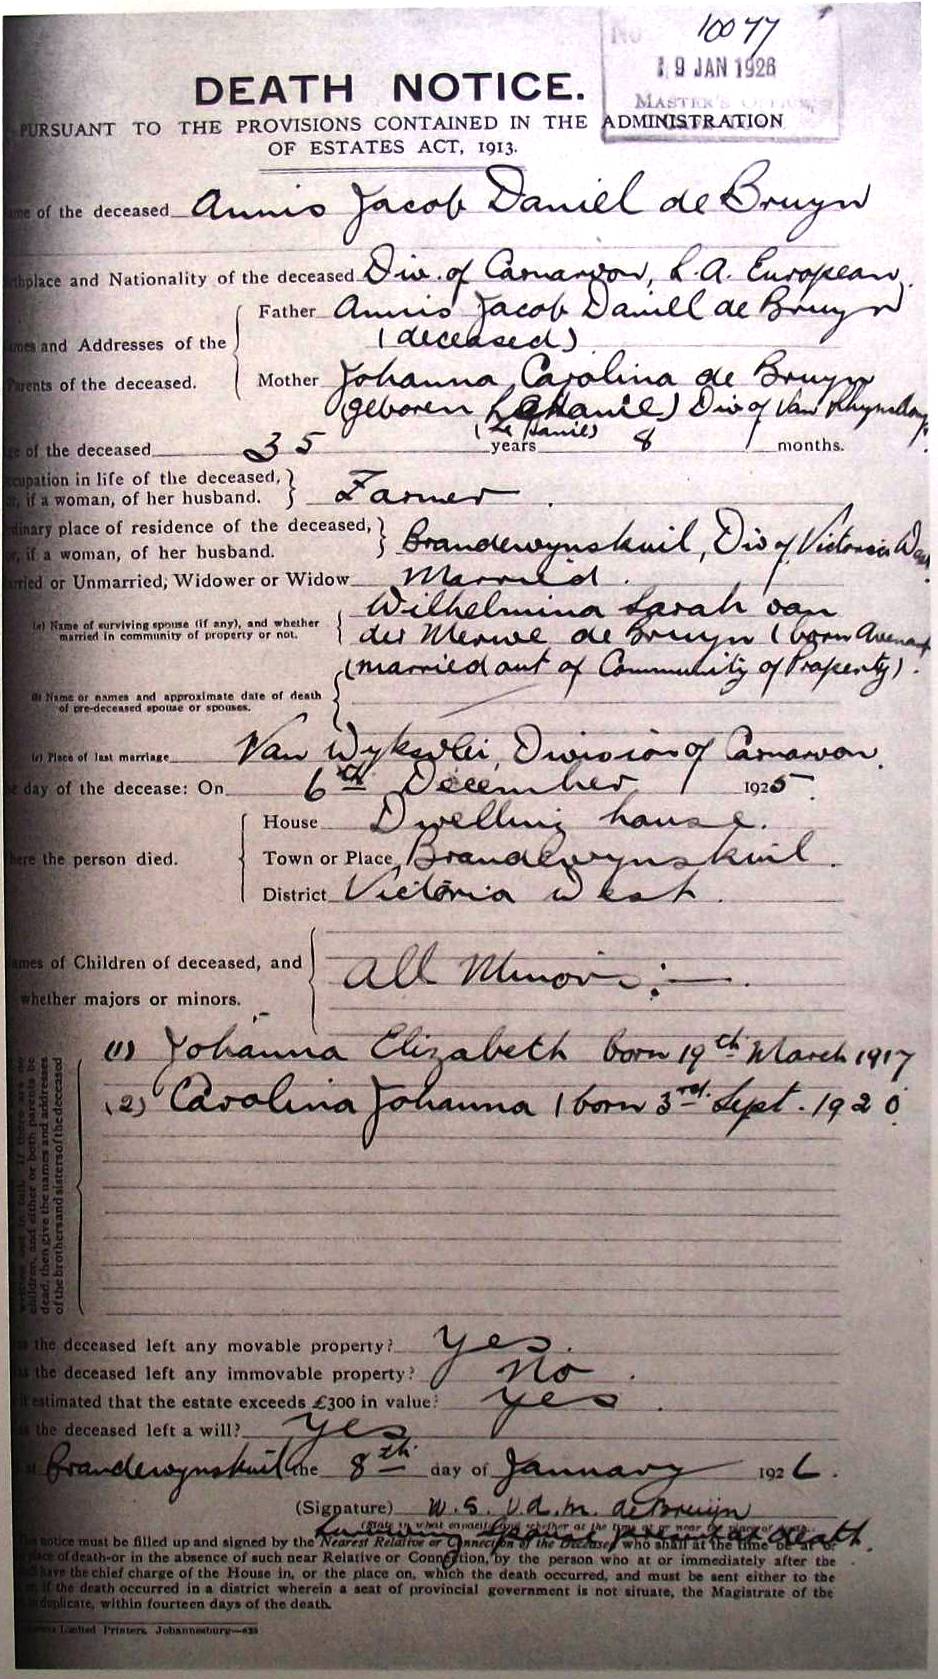 No 10077
19 JAN 1926
MASTER'S OFFICE,
DEATH NOTICE.
PURSUANT TO THE PROVISIONS CONTAINED IN THE ADMINISTRATION
OF ESTATES ACT, 1913.
me of the deceased Annis Jacob Daniel de Bruyn
thplace and Nationality of the deceased Div. of Carnarvon, S.A. European.
Father Annis Jacob Daniel de Bruyn
(deceased)
mes and Addresses of the
Parents of the deceased.
Mother Johanna Carolina de Bruyn
(geboren Div of Van Rhynsdorp
e of the deceased 35 years 8 months.
cupation in life of the deceased,
or, if a woman, of her husband. Farmer.
dinary place of residence of the deceased,
or, if a woman, of her husband. Brandewynskuil, Div of Victoria West
rried or Unmarried; Widower or Widow Married.
(a) Name of surviving spouse (if any), and whether
married in community of property or not.
Wilhelmina Sarah van
der Merwe de Bruyn (born Avenant
(married out of Community of Property).
(b) Name or names and approximate date of death
of pre-deceased spouse or spouses.
(c) Place of last marriage Van Wyksvlei, Division of Carnarvon.
e day of the decease: On 6th December 1925.
here the person died.
House Dwelling house.
Town or Place Brandewynskuil.
District Victoria West.
ames of Children of deceased, and
whether majors or minors.
All Minors:—
(1) Johanna Elizabeth born 19th March 1917
(2) Carolina Johanna born 3rd Sept. 1920
children, and either or both parents be
dead, then give the names and addresses
of the brothers and sisters of the deceased
s the deceased left any movable property? Yes.
s the deceased left any immovable property? No.
it estimated that the estate exceeds £300 in value? Yes.
s the deceased left a will? Yes
Brandewynskuil the 8th day of January 1926.
(Signature) W. S. v.d. M. de Bruijn
(State in what capacity and whether at the time at or near the place of death.
Surviving Spouse present at death.
notice must be filled up and signed by the Nearest Relative or Connection of the Deceased, who shall at the time be at or
place of death-or in the absence of such near Relative or Connection, by the person who at or immediately after the
have the chief charge of the House in, or the place on, which the death occurred, and must be sent either to the
if the death occurred in a district wherein a seat of provincial government is not situate, the Magistrate of the
duplicate, within fourteen days of the death.
Limited Printers, Johannesburg—